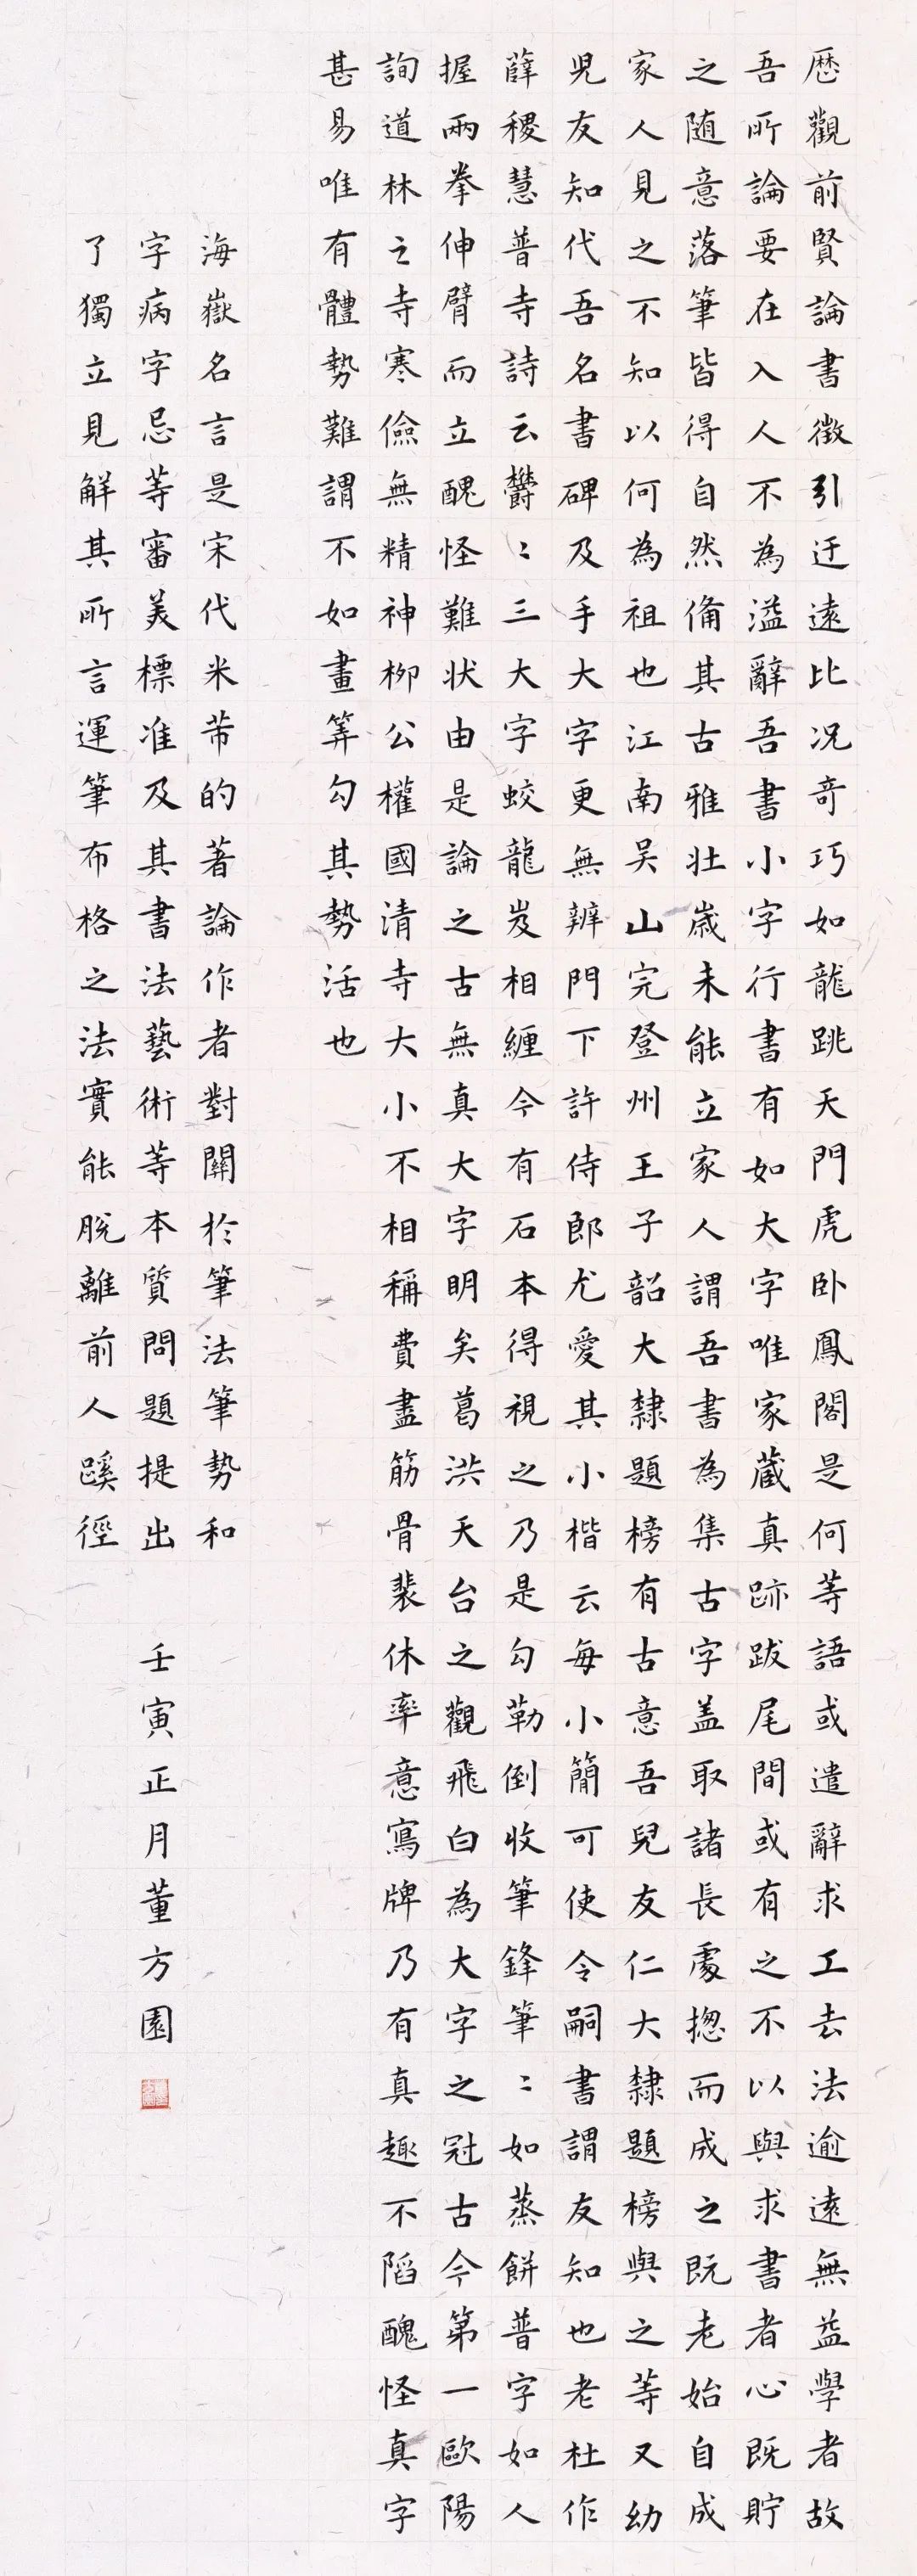 歷觀前賢論書徵引迂遠比况奇巧如龍跳天門虎卧鳳閣是何等語或遣辭求工去法逾遠無益學者故
吾所論要在入人不為溢辭吾書小字行書有如大字唯家藏真跡跋尾間或有之不以與求書者心既貯
之随意落筆皆得自然備其古雅壯歲未能立家人謂吾書為集古字盖取諸長處揔而成之既老始自成
家人見之不知以何為祖也江南吴山完登州王子韶大隸題榜有古意吾兒友仁大隸題榜與之等又幼
兒友知代吾名書碑及手大字更無辨門下許侍郎尤愛其小楷云每小簡可使令嗣書謂友知也老杜作
薛稷慧普寺詩云欝〻三大字蛟龍岌相纏今有石本得視之乃是勾勒倒收筆鋒筆〻如蒸餅普字如人
握兩拳伸臂而立醜怪難状由是論之古無真大字明矣葛洪天台之觀飛白為大字之冠古今第一歐陽
詢道林之寺寒儉無精神柳公權國清寺大小不相稱費盡筋骨裴休率意寫牌乃有真趣不陷醜怪真字
甚易唯有體勢難謂不如畫筭勾其勢活也
海嶽名言是宋代米芾的著論作者對關於筆法筆勢和
字病字忌等審美標准及其書法藝術等本質問題提出
了獨立見解其所言運筆布格之法實能脫離前人蹊徑
壬寅正月董方園